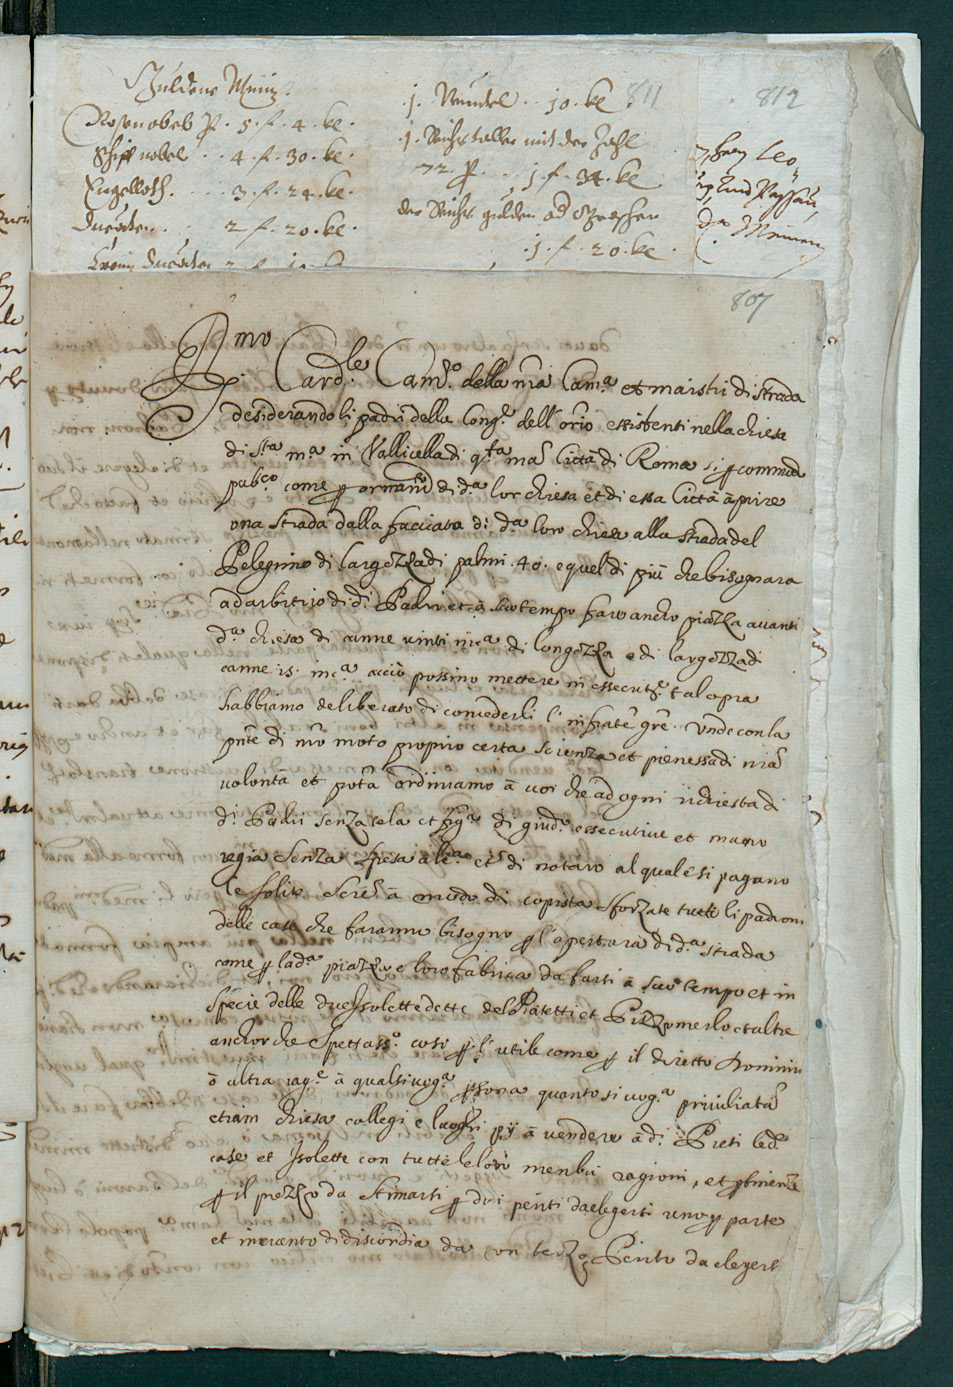 Guldene Müntz.
Rosenobel p. 5. f. 4. ke.
Schiffnobel . . 4. f. 30. ke.
Engelloth. . . . 3. f. 24. ke.
Ducaten. . . 2 f. 20. ke.
811
.j. . . 10. ke.
.j. Reichstaller mit der Zahl
72 p. . . j. f. 34. ke
der Reichs gulden ad
.j. f. 20. ke
812
Leo
Passau
807
Card.le Cam.o della nra Cam.a et maistri di strada
desiderando li padri della Cong.e dell' orio essistenti nella chiesa
di S.ta m.a in Vallicella di q.ta ma Città di Roma si p commodo
pub.co come p ornam.to di d.a lor chiesa et di essa Città aprire
una strada dalla facciata di d.a loro chiesa alla strada del
Pelegrino di largezza di palmi .40. e quel di più che bisognara
ad arbitrio di d.i Padri et à suo tempo far anche piazza avanti
d.a chiesa di canne vinti in c.a di longezza e di largezza di
canne 15. in c.a acciò possino mettere in essecut.e tal opra
habbiamo deliberato di concederli l' infratte gre. Unde con la
pnte di nro moto proprio certa scienza et pienezza di nra
volontà et potà ordiniamo à voi che ad ogni richiesta di
d.i Padri senza tela et fig.a di giud.o essecutive et mano
regia senza spesa di notaro al quale si pagano
le solite à modo di copista sforzate tutti li padroni
delle case che faranno bisogno p l'apertura di d.a strada
come p la d.a piazza e loro fabrica da farsi à suo tempo et in
specie delle due Isolette dette del Piatetti et Pizzomerlo et altre
anchor che spettass.o così p l' utile come p il diretto Dominio
ò altra rag.e à qualsivog.a psona quanto si vog.a priviliata
etiam chiesa collegi e luoghi pij à vendere à d.i Preti le d.e
case et Isolette con tutte le loro menbri ragioni, et ptinenze
p il prezzo da stimarsi p dui periti da elegersi uno p parte
et in evento di discordia da un terzo Perito da elegersi